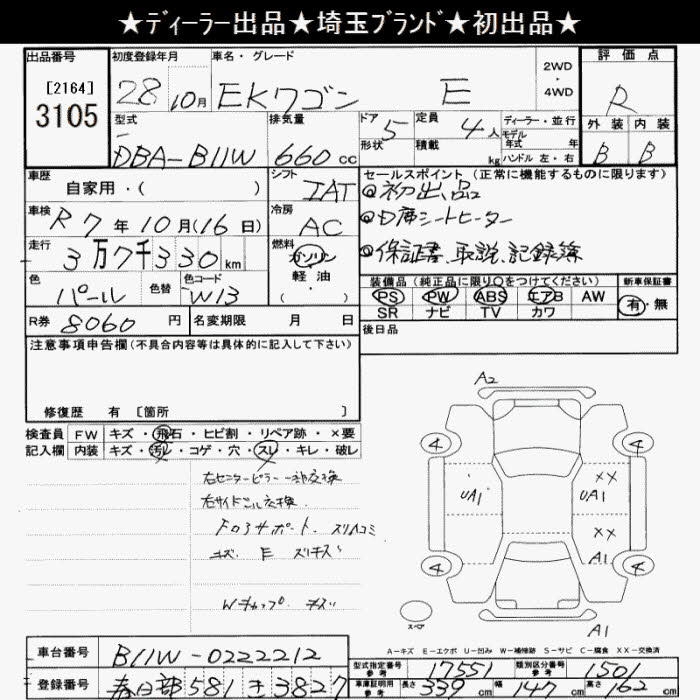 ★ディーラー出品★埼玉ブランド★初出品★
出品番号
[2164]
3105
初度登録年月
28 10月
車名・グレード
EKワゴン E
2WD
・
4WD
評価点
R
外装 内装
B B
型式
DBA-B11W
排気量
660 cc
ドア
5
形状
定員
4人
積載
kg
ディーラー・並行
モデル
年式 年
ハンドル 左・右
車歴
自家用・( )
シフト
IAT
車検
R7年10月(16日)
冷房
AC
走行
3万7千330 km
燃料
ガソリン
軽油
( )
色
パール
色替
色コード
W13
R券 8060 円
名変期限 月 日
セールスポイント (正常に機能するものに限ります)
◎初出品
◎D席シートヒーター
◎保証書、取説、記録簿
装備品(純正品に限り○をつけてください)
PS PW ABS エアB AW
SR ナビ TV カワ
新車保証書
有・無
後日品
注意事項申告欄(不具合内容等は具体的に記入して下さい)
修復歴 有 [箇所 ]
検査員
記入欄
FW キズ・飛石・ヒビ割・リペア跡・×要
内装 キズ・汚レ・コゲ・穴・スレ・キレ・破レ
右センターピラー一部交換
右サイドシル交換
Fロアサポート スリ凹コミ
キズ E スリキズ
Wキャップ キズ
A2
4 4
UA1
XX
UA1
XX
A1
4 4
スペア
A1
A-キズ E-エクボ U-凹み W-補修跡 S-サビ C-腐食 XX-交換済
車台番号 B11W-0222212
登録番号 春日部 581 き 3827
型式指定番号
参考
17551
類別区分番号
参考
1501
車庫証明用
参考
長さ 339 cm 幅 147 cm 高さ 162 cm